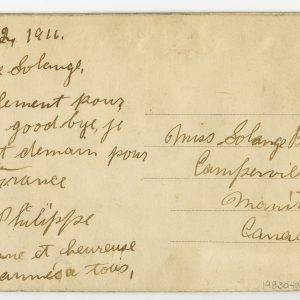 2, 1916.
Solange,
lement pour
good-bye, je
t demain pour
France
Philippe
ne et heureuse
année à tous,
Miss Solange
Campervil
Manit
Canad